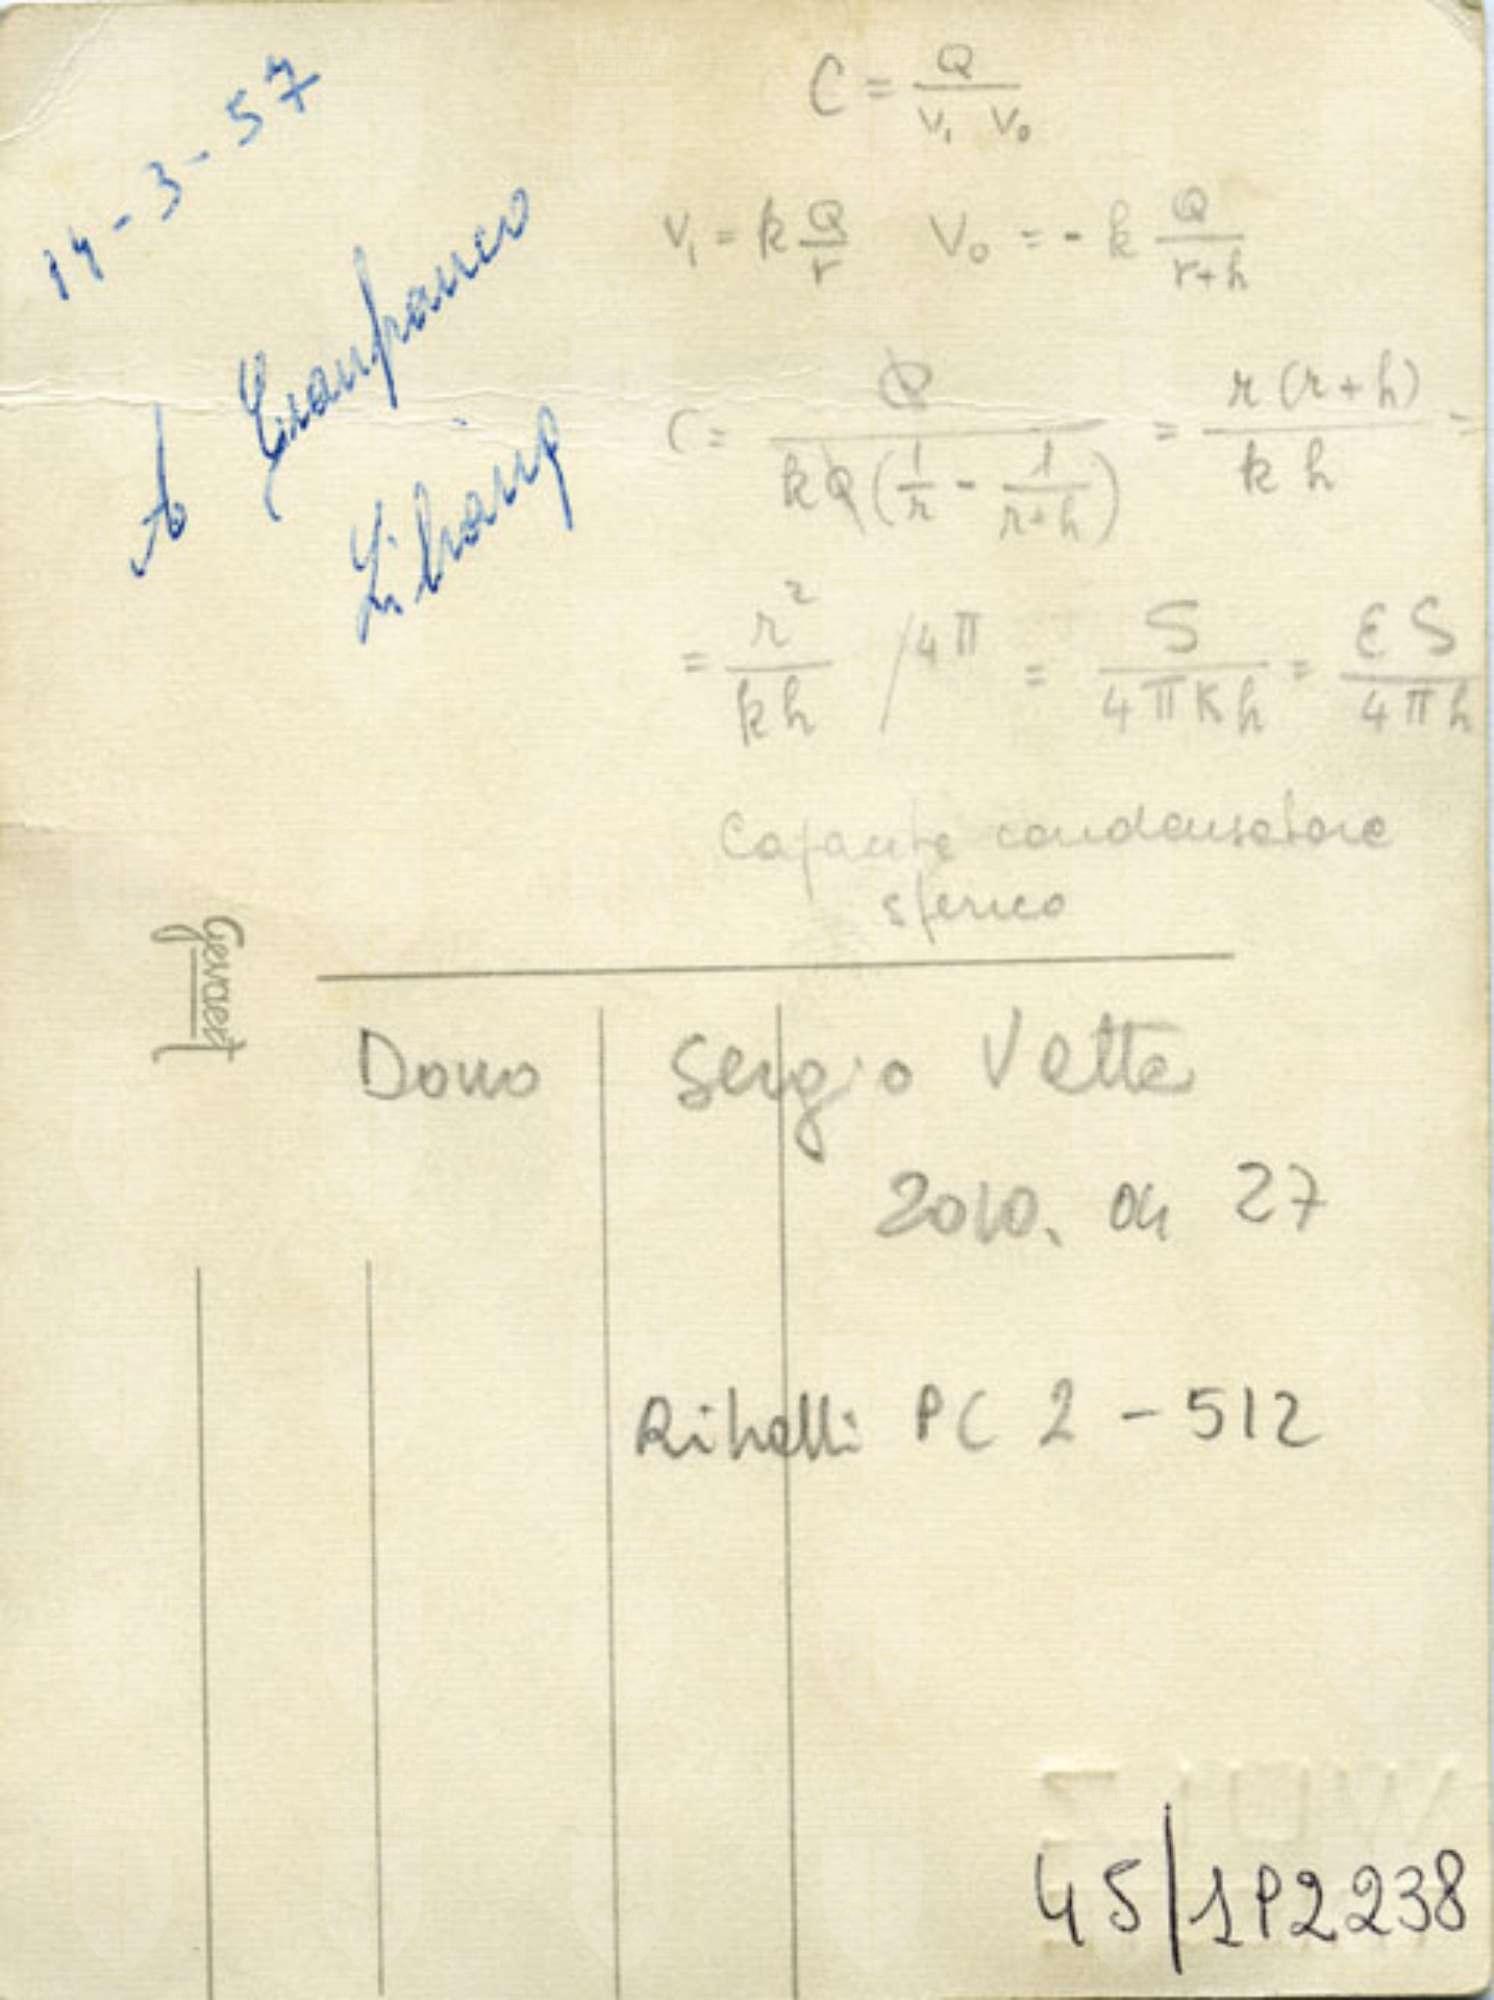 14-3-57
A Gianfranco
C = Q / V₁ V₀
V₁ = k Q/r V₀ = - k Q/(r+h)
C = Q / kQ(1/r - 1/(r+h)) = r(r+h) / k h =
= r² / k h /4π = S / 4πKh = εS / 4πh
Capacità condensatore
sferico
Gevaert
Dono Sergio Vatta
2010. 04 27
Rihelli PC 2 - 512
WULZ
45/1P2238